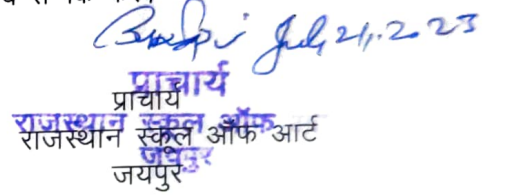 July 21, 2023
प्राचार्य
प्राचार्य
राजस्थान स्कूल ऑफ
राजस्थान स्कूल ऑफ आर्ट
जयपुर
जयपुर